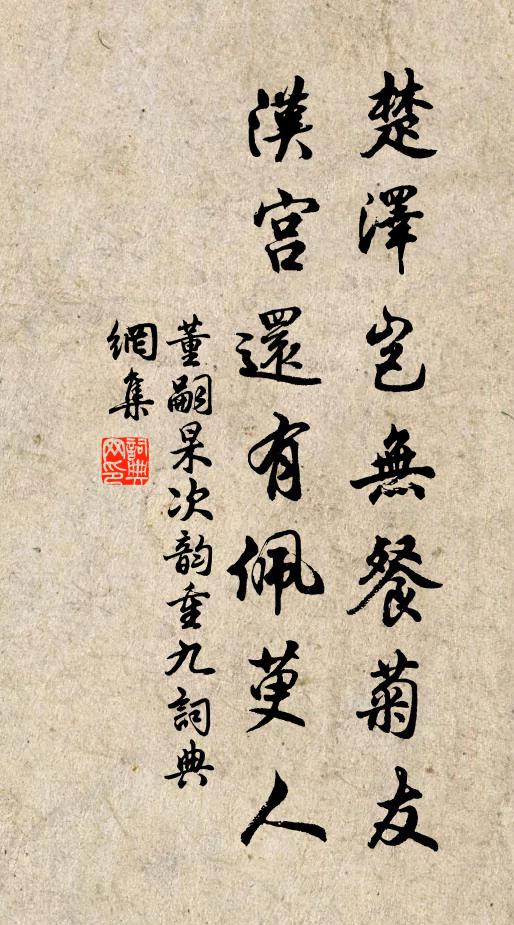 楚澤豈無餐菊友
漢宮還有佩萸人
董嗣杲次韵重九詞典
網集
詞典
网印